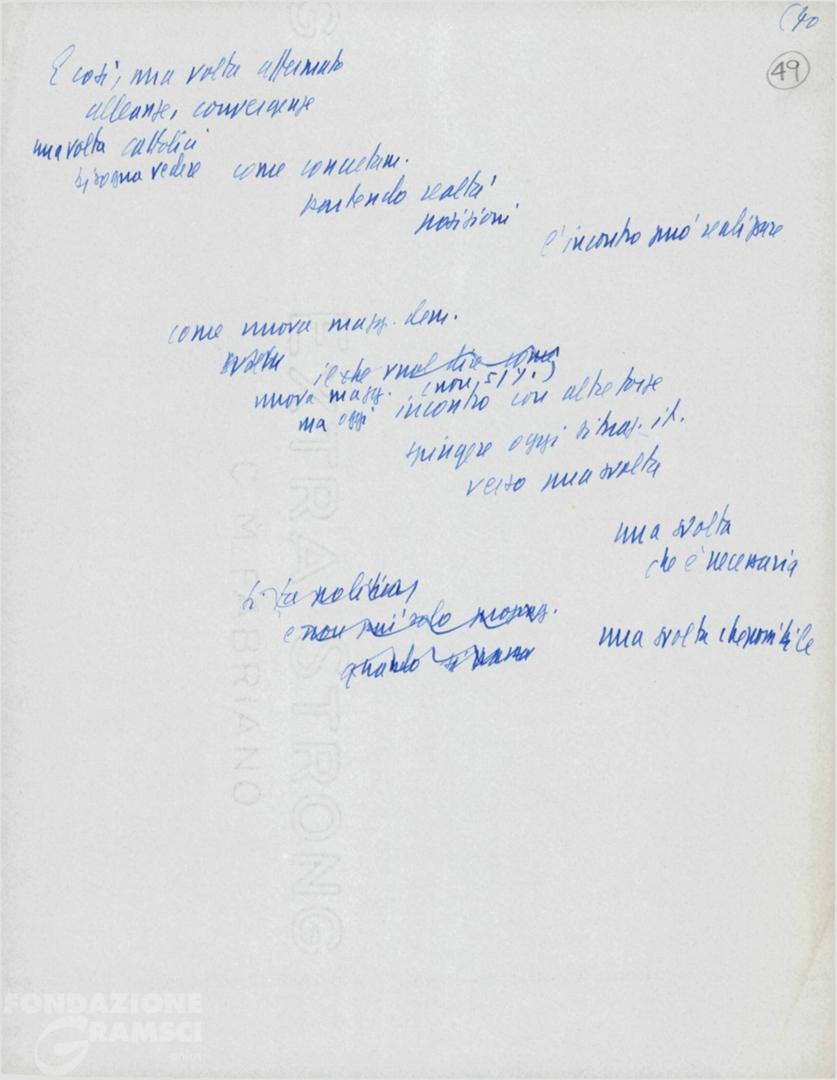 (40
49
E così, una volta affermato
alleanze, convergenze
una volta cattolici
bisogna vedere come concretam.
partendo realtà
posizioni
l'incontro può realizzare
come nuova magg. dem.
il che vuol dire come
nuova magg. (non 51%)
ma oggi incontro con altre forze
spingere oggi situaz. it.
verso una svolta
una svolta
che è necessaria
la politica
è non più solo
quando si
una svolta che possibile
EXTRASTRONG
C.M.FABRIANO
FONDAZIONE
GRAMSCI
onlus